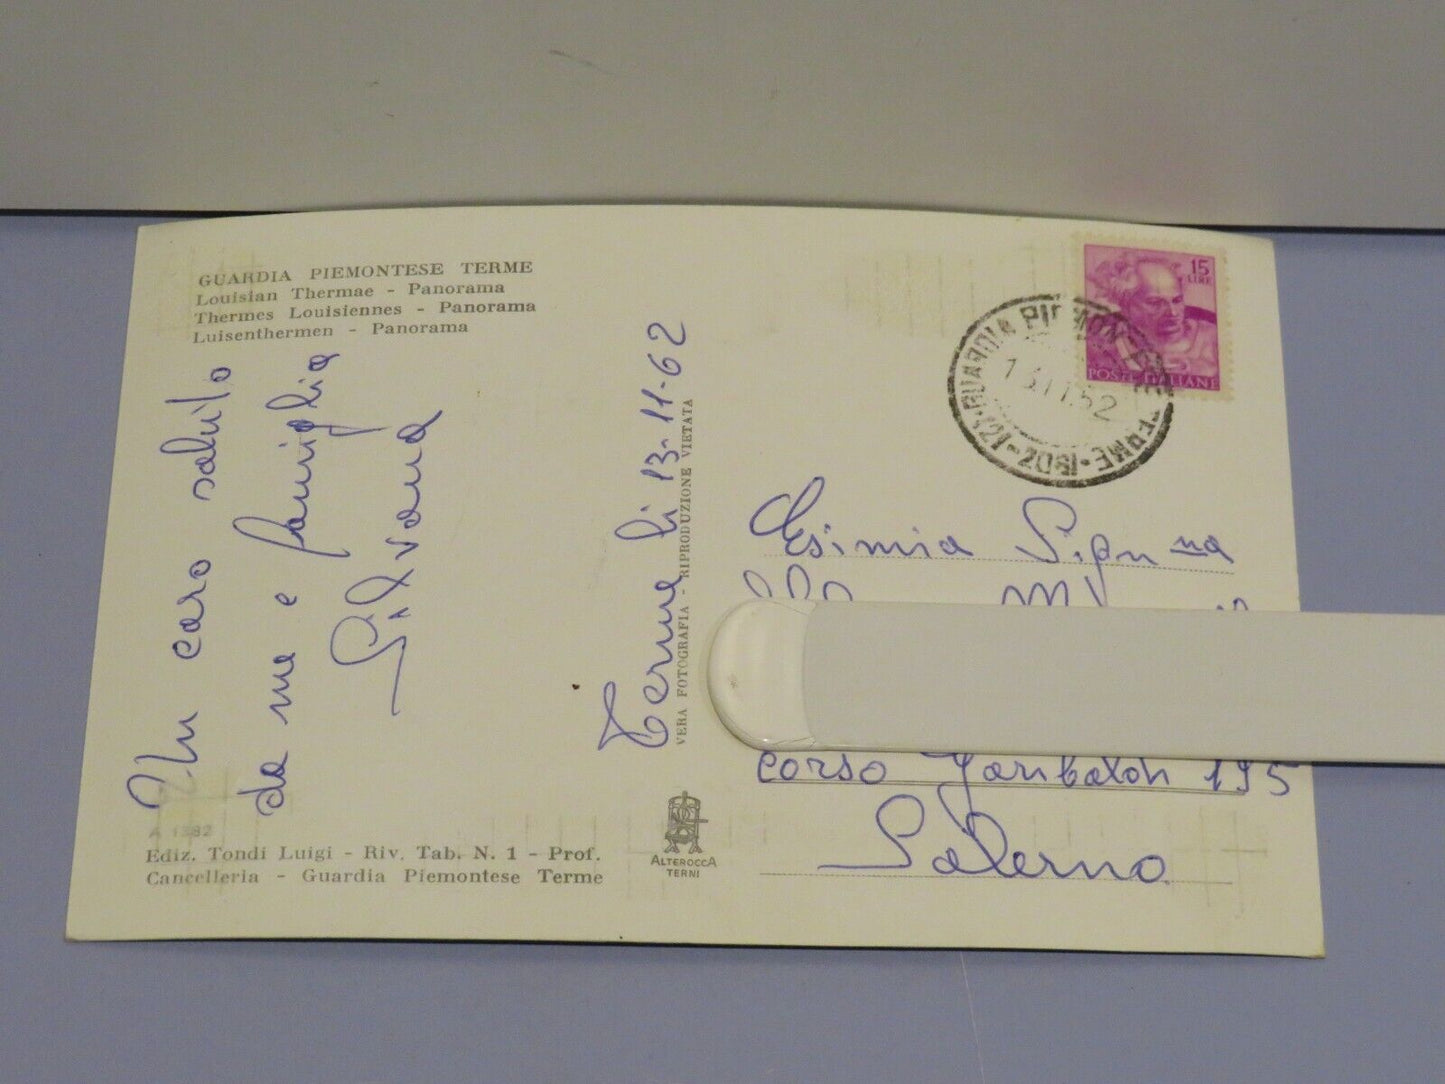 GUARDIA PIEMONTESE TERME
Louisian Thermae - Panorama
Thermes Louisiennes - Panorama
Luisenthermen - Panorama
Un caro saluto
da me e famiglia
Silvana
Terme li 13-11-62
VERA FOTOGRAFIA - RIPRODUZIONE VIETATA
15
LIRE
POSTE ITALIANE
GUARDIA PIEMONTESE TERME
Esimia Sig.na
corso Garibaldi 195
Salerno
A 1382
Ediz. Tondi Luigi - Riv. Tab. N. 1 - Prof.
Cancelleria - Guardia Piemontese Terme
ALTEROCCA
TERNI